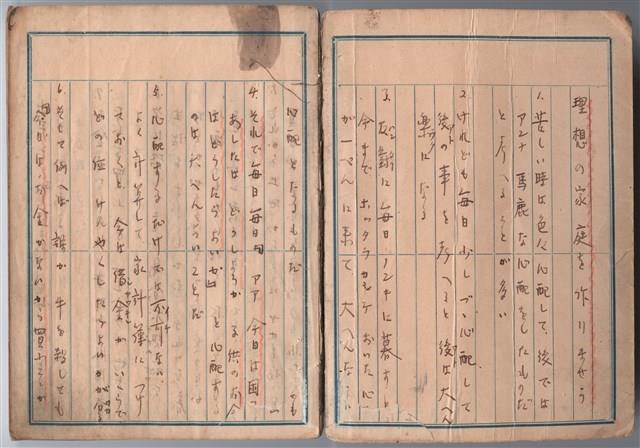 理想の家庭を作りませう
1. 苦しい時は色々心配して、後では
アンナ馬鹿な心配をしたものだ
と考へることが多い
2. けれども毎日少しづゝ心配して
後の事を考へると後は大へん
楽になる
3. 反対に毎日ノンキに暮すと
今までホッタラカシておいた心
が一ぺんに来て大へんな
心配となるものだ
4. それで毎日毎日アア今日は困っ
あしたはどうしようか子供の
はどうしたらよいかと心配する
のは大へんつらいことだ
5. 心配するだけではいけない
よく計算して家計簿につけ
ておくと今は借金がいくらで
どの位けんやくしたらよいかが
6. そして例へば誰か牛を殺しても
今はお金がないから買ふ